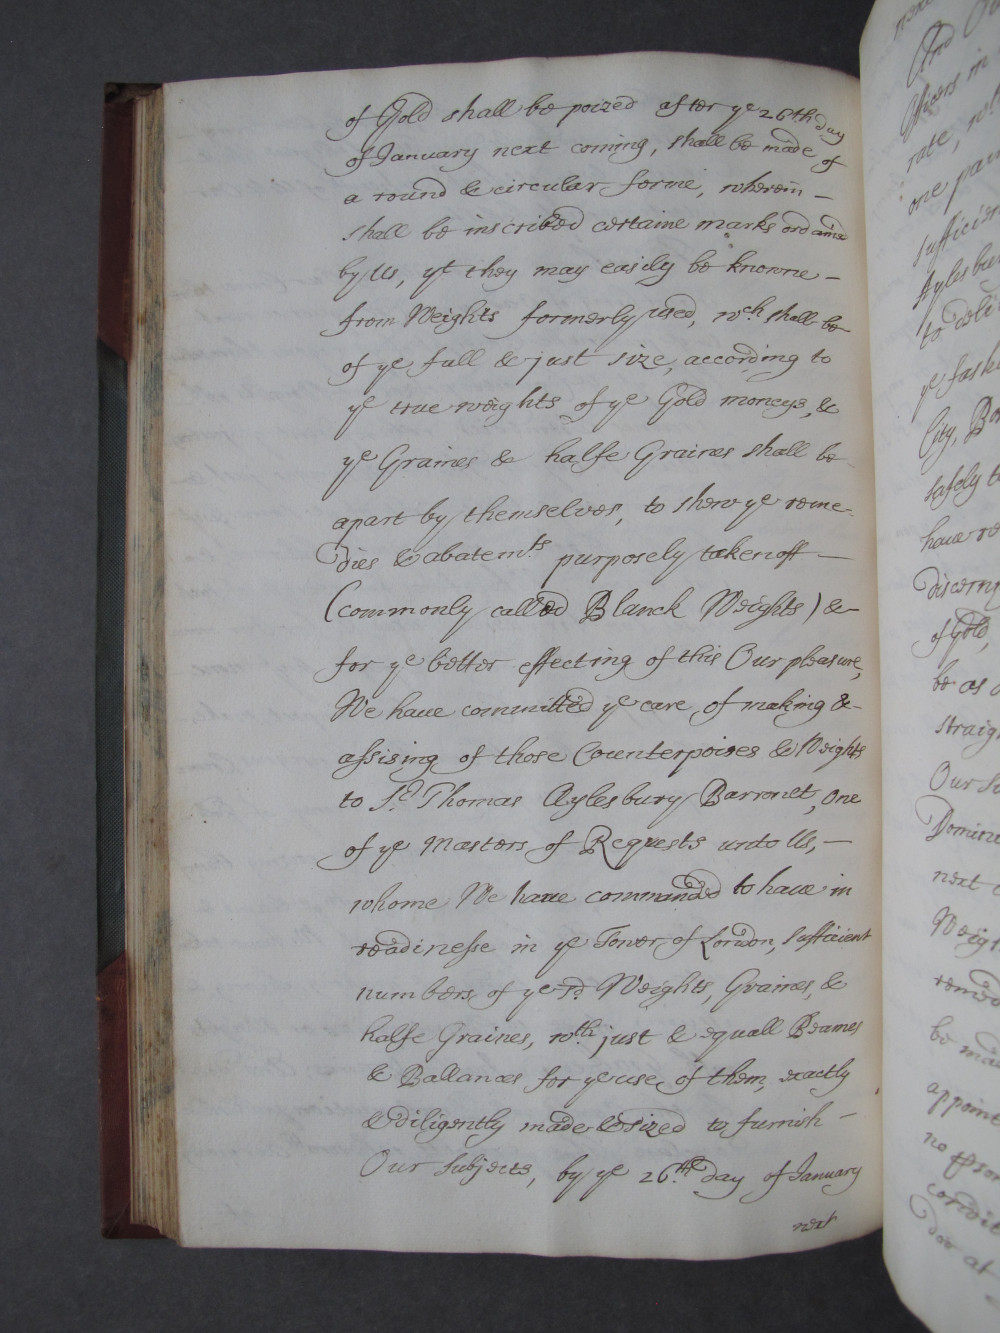 of Gold shall be poized after ye 26th day
of January next coming, shall be made of
a round & circular forme, wherein –
shall be inscribed certaine marks ordained
by Us, yt they may easily be knowne –
from Weights formerly used, wch shall be
of ye full & just size, according to
ye true weights of ye Gold moneys, &
ye Graines & halfe Graines shall be
apart by themselves, to shew ye reme-
dies & abatemts purposely taken off —
(commonly called Blanck Weights) & –
for ye better effecting of this Our pleasure,
We haue committed ye care of making & –
assising of those Counterpoises & Weights
to Sr. Thomas Aylesbury Barronet, One
of ye Masters of Requests unto Us, —
whome We haue commanded to haue in
readinesse in ye Tower of London, sufficient
numbers of ye sd. Weights, Graines, &
halfe Graines, wth just & equall Beames
& Ballances for ye use of them, exactly
& diligently made & sized to furnish –
Our Subjects, by ye 26.th day of January
next
next
And
Officers in
rate,
one
sufficien
Aylesbury
to deli
ye
City, Bor
safely to
haue re
discerny
of Gold,
be as
straigh
Our
Domini
next
Weigh
remed
be mad
appointe
no
condit
doe at